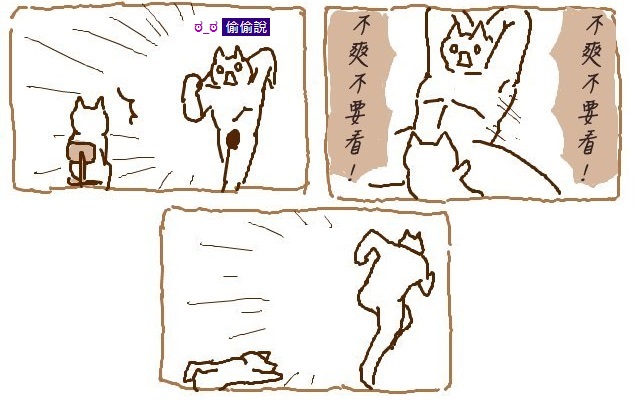 ಠ_ಠ 偷偷說
不爽不要看！
不爽不要看！